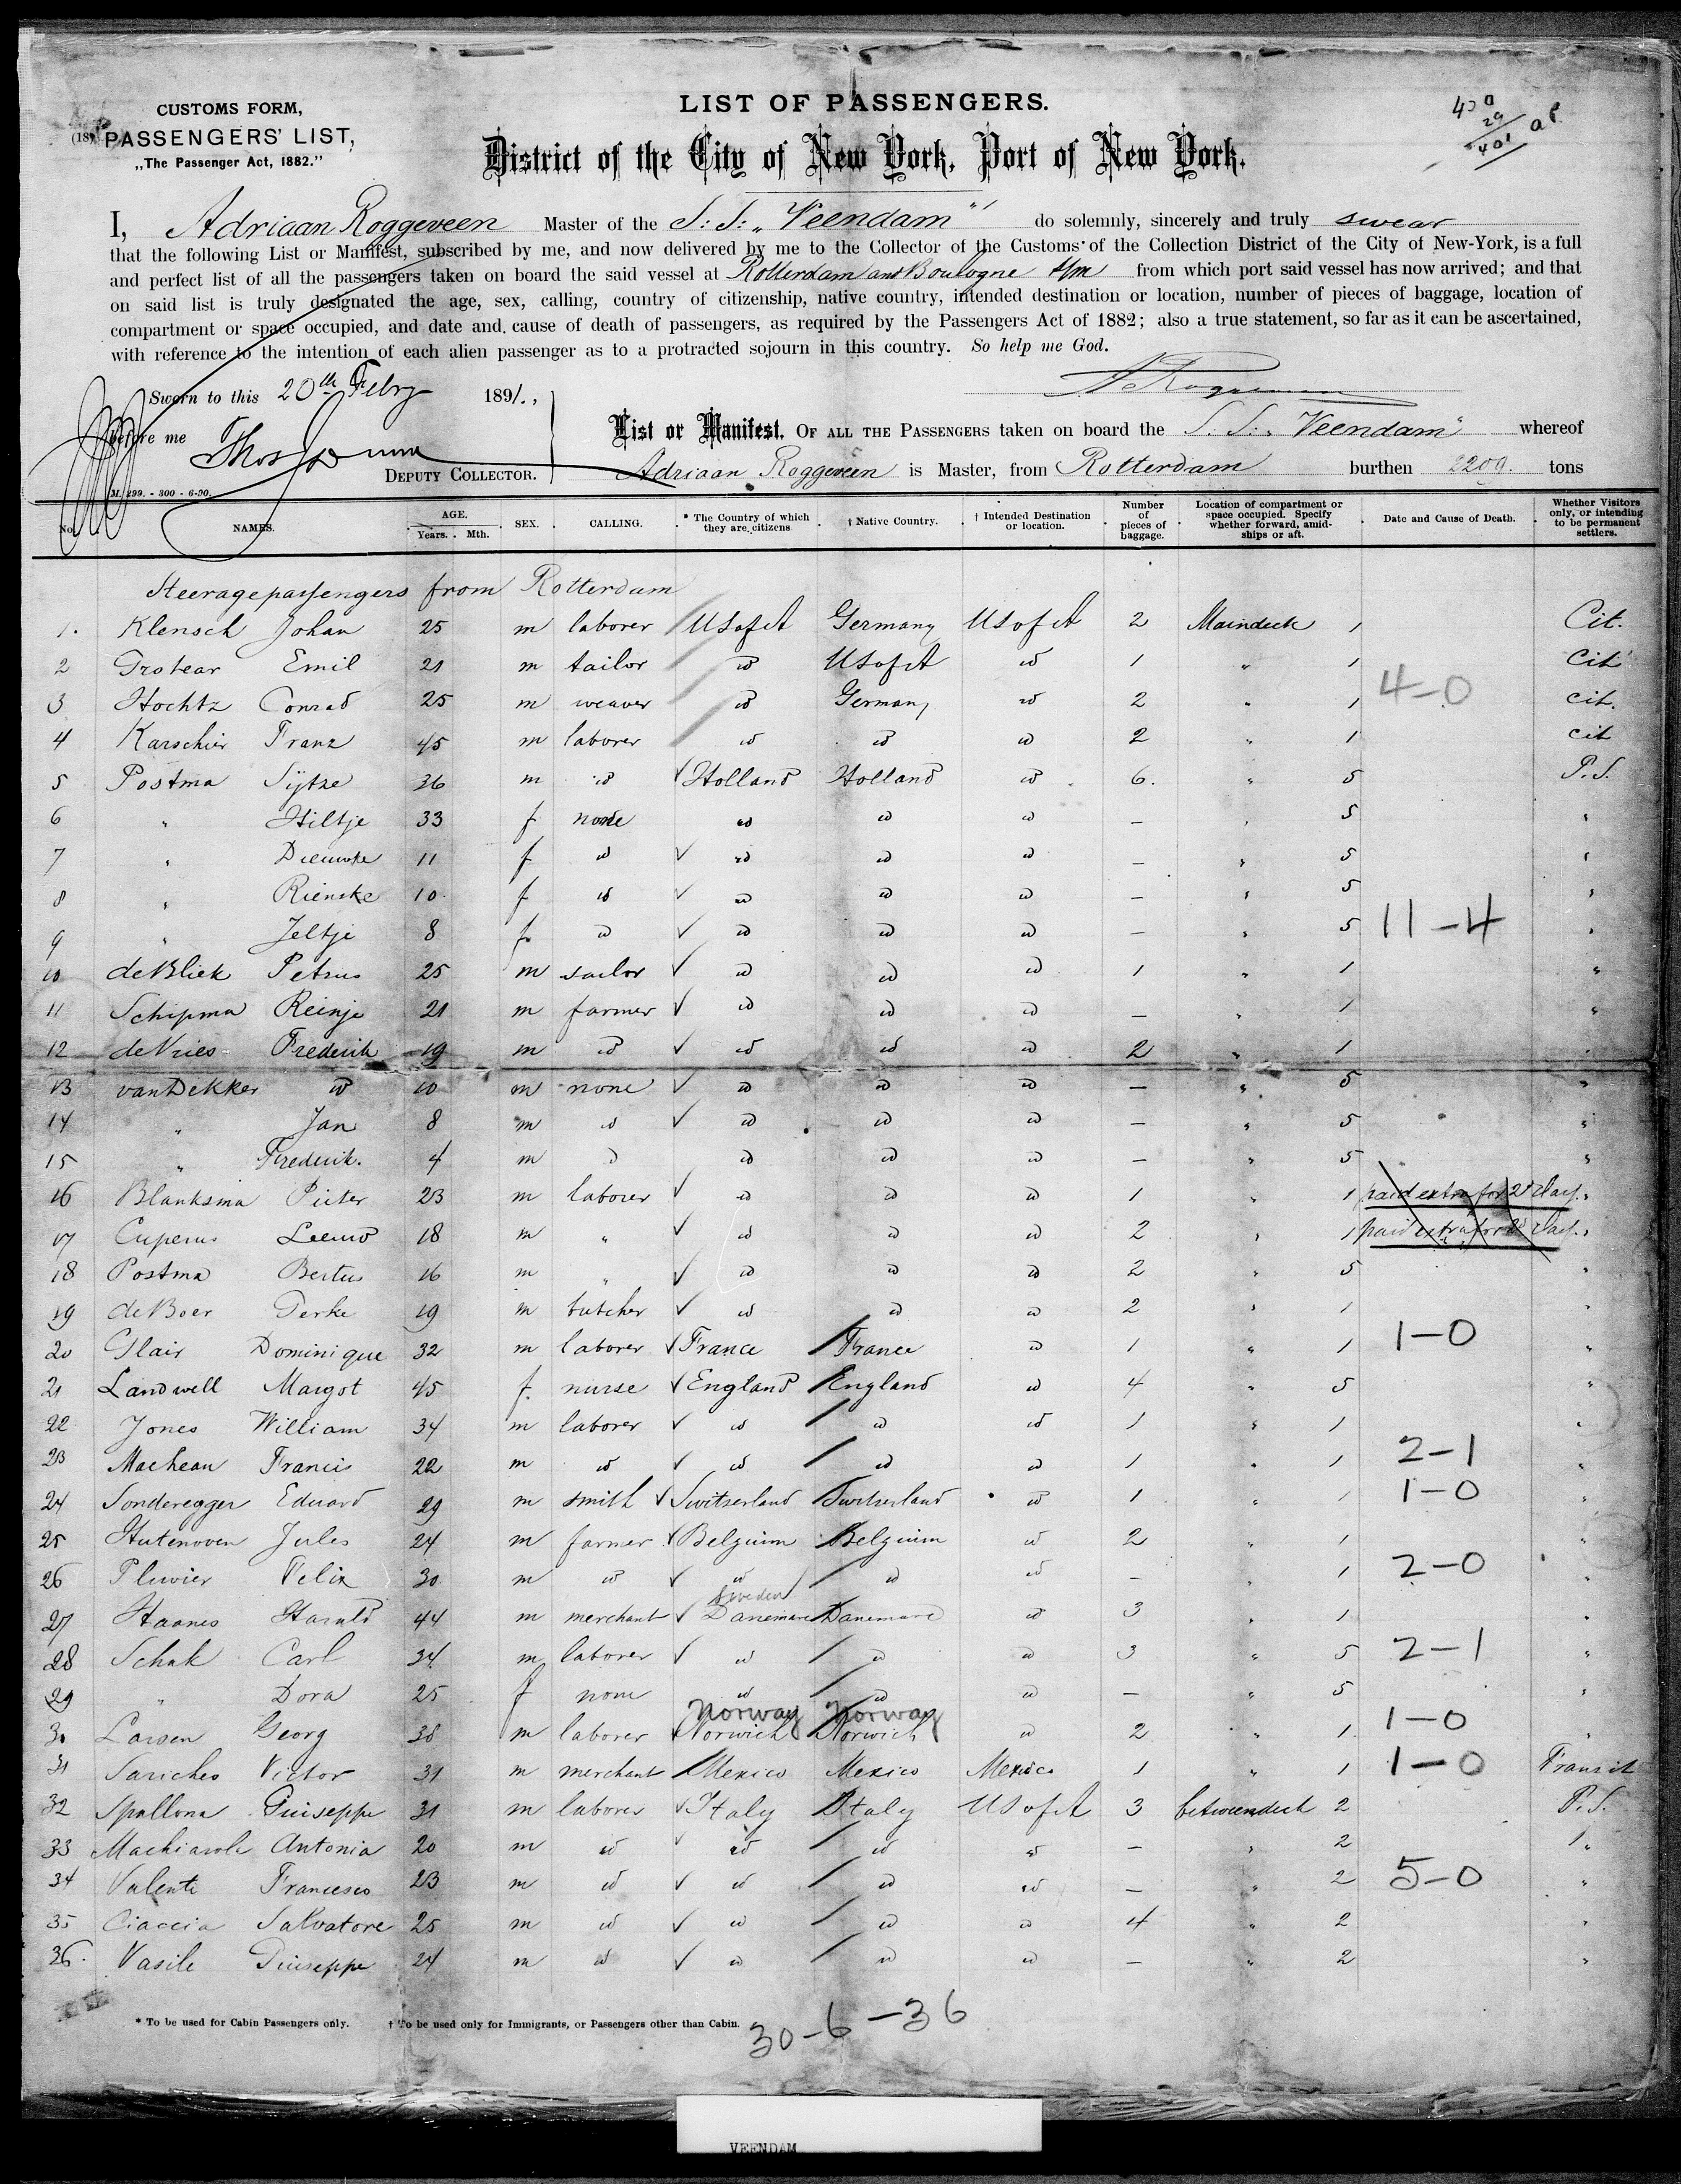 LIST OF PASSENGERS.
CUSTOMS FORM,
PASSENGERS' LIST,
„The Passenger Act, 1882."
District of the City of New York, Port of New York.
I, Adriaan Roggeveen Master of the S: S: „Veendam" do solemnly, sincerely and truly swear
that the following List or Manifest, subscribed by me, and now delivered by me to the Collector of the Customs of the Collection District of the City of New-York, is a full
and perfect list of all the passengers taken on board the said vessel at Rotterdam and Boulogne s/m from which port said vessel has now arrived; and that
on said list is truly designated the age, sex, calling, country of citizenship, native country, intended destination or location, number of pieces of baggage, location of
compartment or space occupied, and date and cause of death of passengers, as required by the Passengers Act of 1882; also a true statement, so far as it can be ascertained,
with reference to the intention of each alien passenger as to a protracted sojourn in this country. So help me God.
Sworn to this 20th Febry 1891.,
before me
DEPUTY COLLECTOR.
List or Manifest, OF ALL THE PASSENGERS taken on board the S. S. „Veendam" whereof
Adriaan Roggeveen is Master, from Rotterdam burthen 2209. tons
M. 299. - 300 - 6-90.
No. NAMES. AGE. Years. Mth. SEX. CALLING. * The Country of which they are citizens † Native Country. † Intended Destination or location. Number of pieces of baggage. Location of compartment or space occupied. Specify whether forward, amidships or aft. Date and Cause of Death. Whether Visitors only, or intending to be permanent settlers.
Steeragepassengers from Rotterdam
1. Klensch Johan 25 m laborer USofA Germany USofA 2 Maindeck 1 Cit.
2 Grotear Emil 21 m tailor id USofA id 1 " 1 Cit
3 Hochtz Conrad 25 m weaver id Germany id 2 " 1 4-0 cit.
4 Karschier Franz 45 m laborer id id id 2 " 1 cit
5 Postma Sijtze 36 m id Holland Holland id 6. " 5 P.S.
6 " Hiltje 33 f none id id id - " 5 "
7 " Dieuwke 11 f id id id id - " 5 "
8 " Rienske 10 f id id id id - " 5 "
9 " Jeltje 8 f. id id id id - " 5 11-4 "
10 deBliek Petrus 25 m sailor id id id 1 " 1 "
11 Schipma Reinje 21 m farmer id id id - " 1 "
12 deVries Frederik 19 m id id id id 2 " 1 "
13 vanDekker id 10 m none id id id - " 5 "
14 " Jan 8 m id id id id - " 5 "
15 " Frederik. 4 m id id id id - " 5 "
16 Blanksma Pieter 23 m laborer id id id 1 " 1 paid extra for 2d Clas. "
17 Cuperus Leeuw 18 m " id id id 2 " 1 paid extra for 2d Clas. "
18 Postma Bertus 16 m " id id id 2 " 5 "
19 deBoer Ferke 19 m butcher id id id 2 " 1 "
20 Glair Dominique 32 m laborer France France id 1 " 1 1-0 "
21 Landwell Margot 45 f. nurse England England id 4 " 5 "
22 Jones William 34 m laborer id id id 1 " 1 "
23 Machean Francis 22 m id id id id 1 " 1 2-1 "
24 Sonderegger Eduard 29 m smith Switserland Switserland id 1 " 1 1-0 "
25 Hutenoven Jules 24 m farmer Belgium Belgium id 2 " 1 "
26 Pluvier Felix 30 m id id id id - " 1 2-0 "
Sweden
27 Haanes Harald 44 m merchant Danemarc Danemarc id 3 " 1 "
28 Schak Carl 34 m laborer id id id 3 " 5 2-1 "
29 " Dora 25 f none id id id - " 5 "
Norway Norway
30 Larsen Georg 38 m laborer Norwich Norwich id 2 " 1 1-0 "
31 Sariches Victor 31 m merchant Mexico Mexico Mexico 1 " 1 1-0 Transit
32 Spallona Guiseppe 31 m laborer Italy Italy USofA 3 betweendeck 2 P.S.
33 Machiarola Antonia 20 m id id id id - " 2 "
34 Valenti Francesco 23 m id id id id - " 2 5-0 "
35 Ciaccia Salvatore 25 m id id id id 4 " 2 "
36. Vasile Giuseppe 24 m id id id id - " 2 "
* To be used for Cabin Passengers only. † To be used only for Immigrants, or Passengers other than Cabin.
30-6-36
VEENDAM